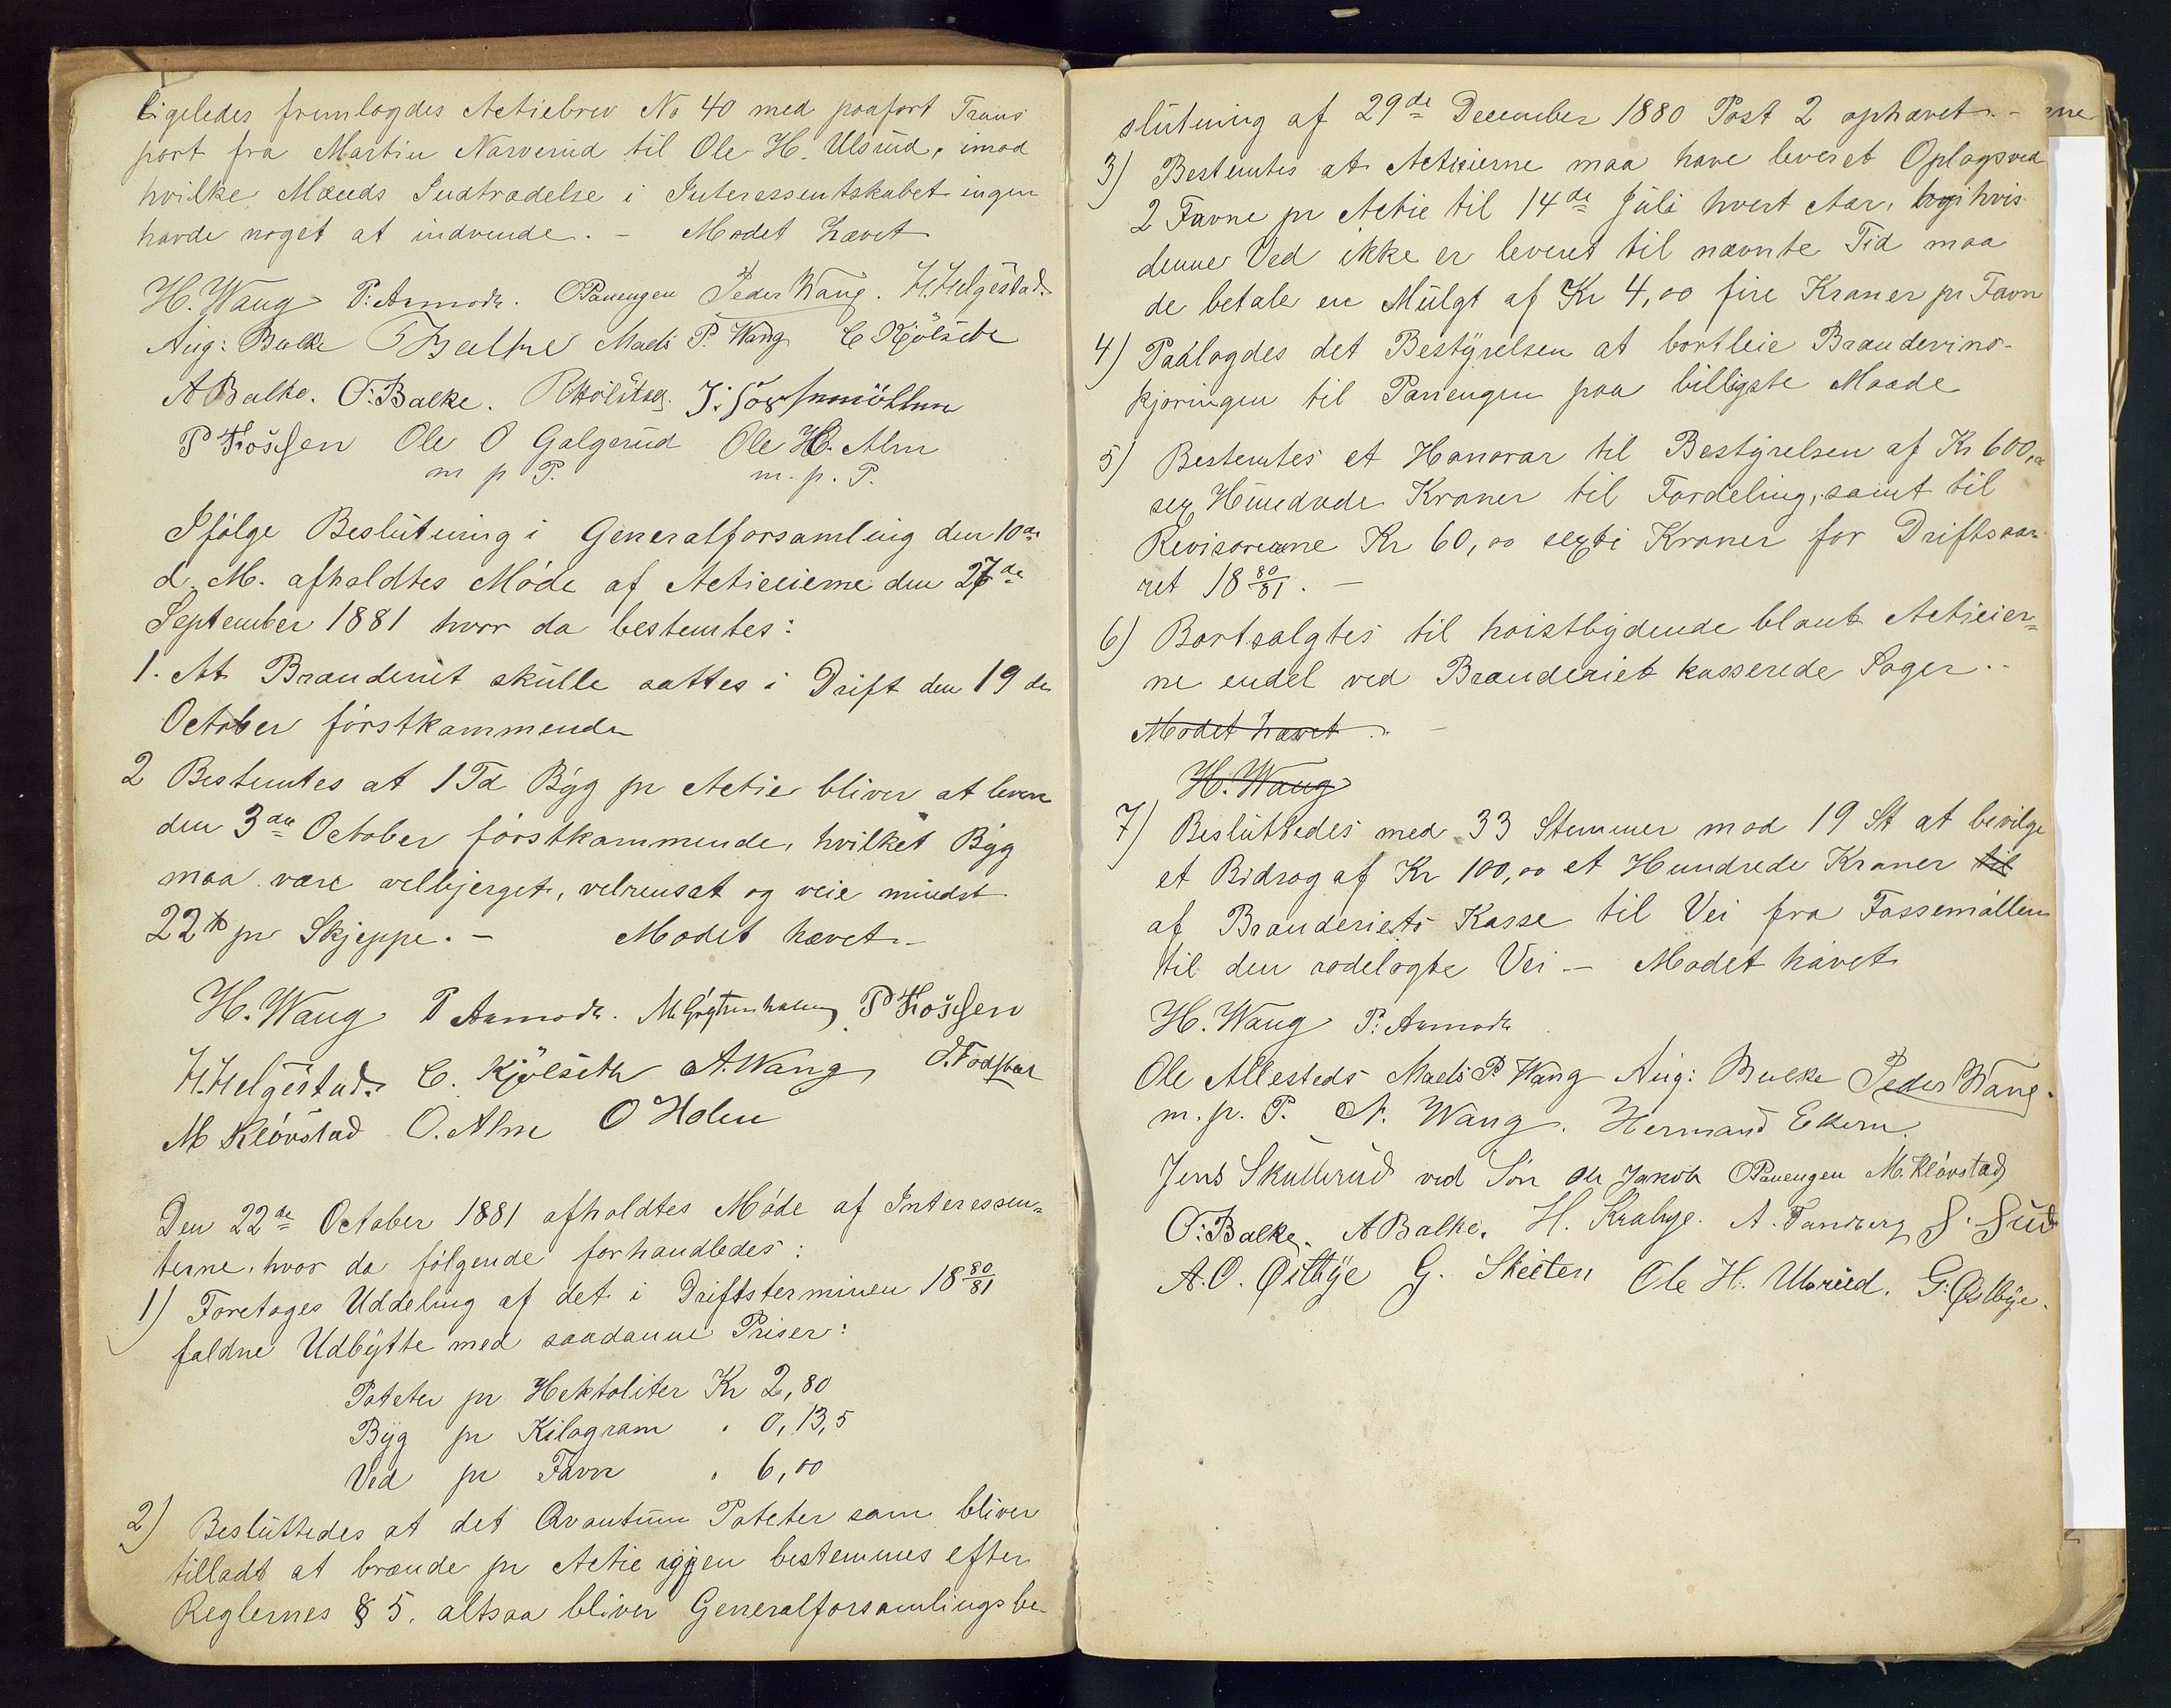 Ligeledes fremlagdes Actiebrev No 40 med paafört Trans
port fra Martin Narverud til Ole H. Ulsrud, imod
hvilke Mænds Indtrædelse i Interessentskabet ingen
havde noget at indvende. - Mödet hævet
H. Wang P. Aamodt. O Panengen Peder Wang. H. Helgestad.
Aug: Balke Balke Mads P. Wang C Kjölseth
A Balke. O. Balke.
P Fossen Ole O Galgerud Ole H. Alm
m p P. m. p. P.
Ifölge Beslutning i Generalforsamling den 10de
d. M. afholdtes Möde af Actieeierne den 27de
September 1881 hvor da bestemtes:
1. At Brænderiet skulle sættes i Drift den 19de
October förstkommende
2 Bestemtes at 1 Td Byg pr Actie bliver at levere
den 3die October förstkommende, hvilket Byg
maa være velbjerget, velrenset og veie mindst
22 ℔ pr Skjeppe. - Mödet hævet. -
H. Wang P Aamodt. P Fossen
H. Helgestad. C. Kjölseth A. Wang
M Klövstad O. Alm O Holm
Den 22de October 1881 afholdtes Möde af Interessen=
terne, hvor da fölgende forhandledes:
1) Foretoges Uddeling af det i Driftsterminen 18 80/81
faldne Udbytte med saadanne Priser:
Poteter pr Hektoliter Kr 2,80
Byg pr Kilogram " 0,13,5
Ved pr Favn " 6,00
2) Besluttedes at det Qvantum Poteter som bliver
tilladt at brænde pr Actie igjen bestemmes efter
Reglernes § 5. altsaa bliver Generalforsamlingsbe-
slutning af 29de December 1880 Post 2 ophævet. -
3) Bestemtes at Actieeierne maa have leveret Oplagsved
2 Favne pr Actie til 14de Juli hvert Aar, hvis
denne Ved ikke er leveret til nævnte Tid maa
de betale en Mulgt af Kr 4,00 fire Kroner pr Favn
4) Paalagdes det Bestyrelsen at bortleie Brændevins-
kjöringen til Panengen paa billigste Maade
5) Bestemtes et Honorar til Bestyrelsen af Kr 600,00
sex Hundrede Kroner til Fordeling, samt til
Revisorerne Kr 60,00 sexti Kroner for Driftsaa-
ret 18 80/81. -
6) Bortsolgtes til höistbydende blant Actieeier=
ne endel ved Brænderiet kasserede Sager. -
Mödet hævet. -
H. Wang
7) Besluttedes med 33 Stemmer mod 19 St at bevilge
et Bidrag af Kr 100,00 et Hundrede Kroner til
af Brænderiets Kasse til Vei fra Fossemöllen
til den rodelagte Vei - Mödet hævet
H. Wang P. Aamodt
Ole Allestads Mads P. Wang Aug: Balke Peder Wang.
m. p. P. A. Wang. Herman Ekern.
Jens Skullerud ved Sön Ole Jakob O Panengen M. Klövstad
O. Balke. A Balke. H. Krabye. A. Tandberg
A. O. Östbye G. Skisten Ole H. Ulsrud. G. Østbye.